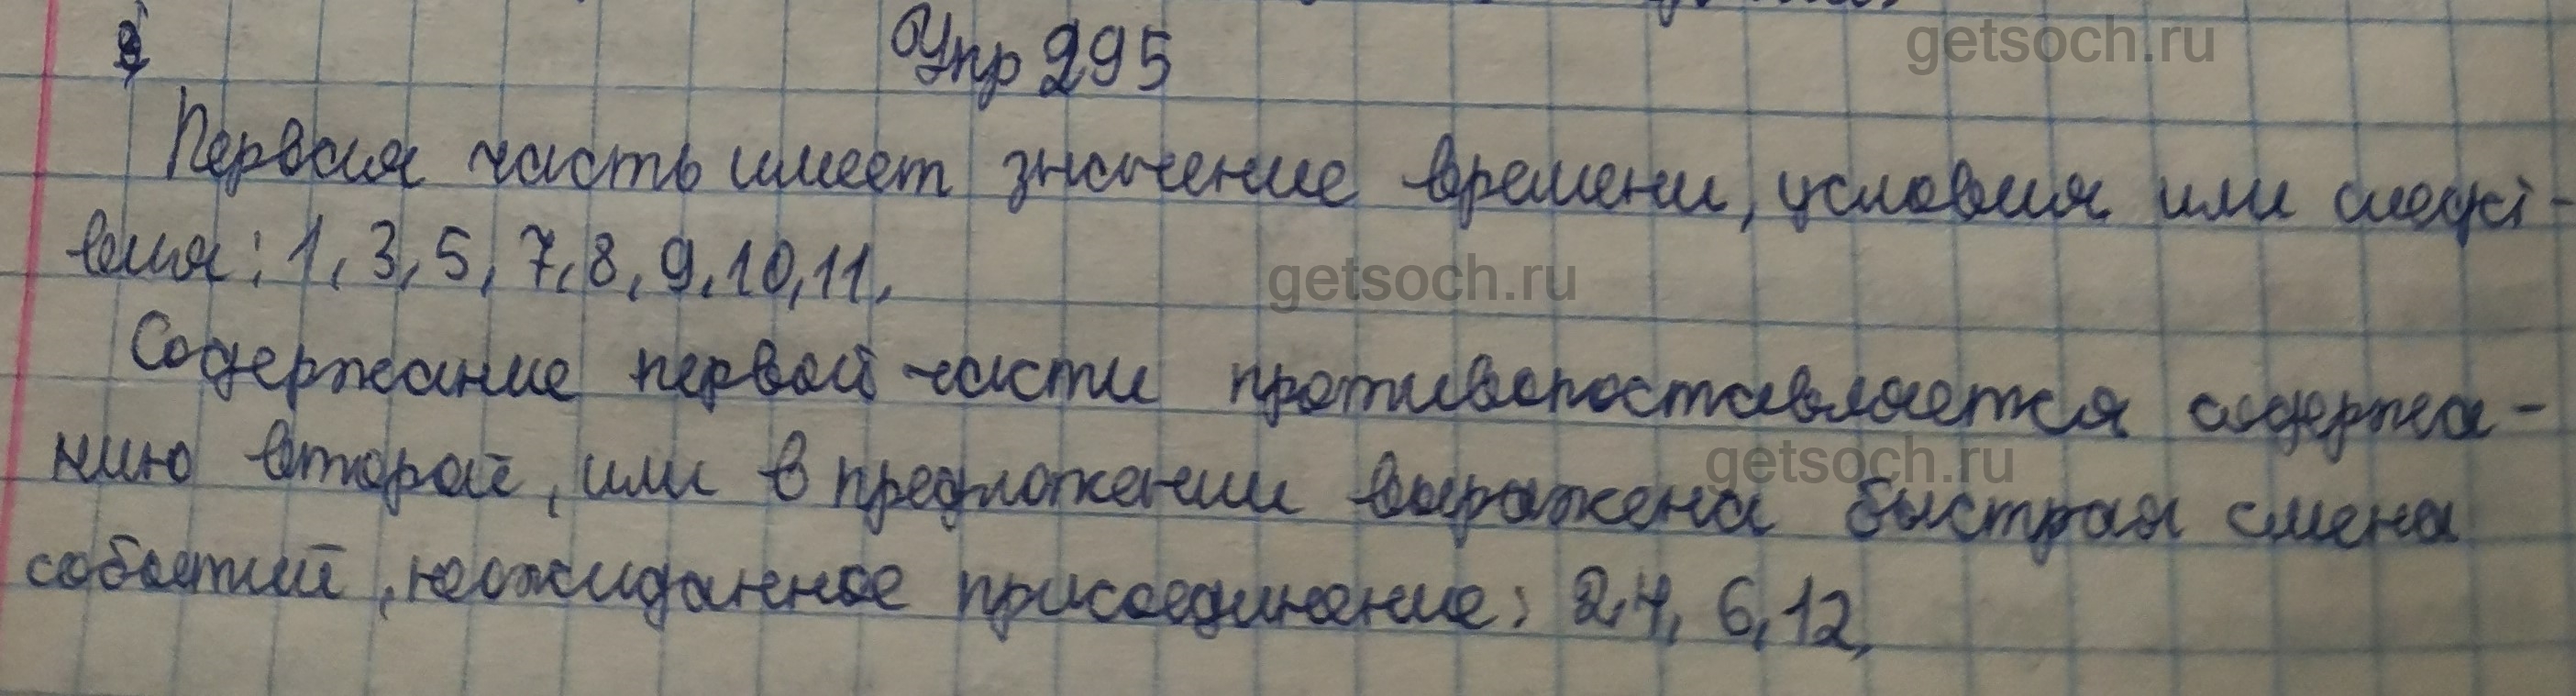 Упр 295
getsoch.ru
Первая часть имеет значение времени, условия или следст-
вия: 1, 3, 5, 7, 8, 9, 10, 11.
getsoch.ru
Содержание первой части противопоставляется содержа-
нию второй, или в предложении выражена быстрая смена
getsoch.ru
событий, неожиданное присоединение: 2,4, 6, 12,